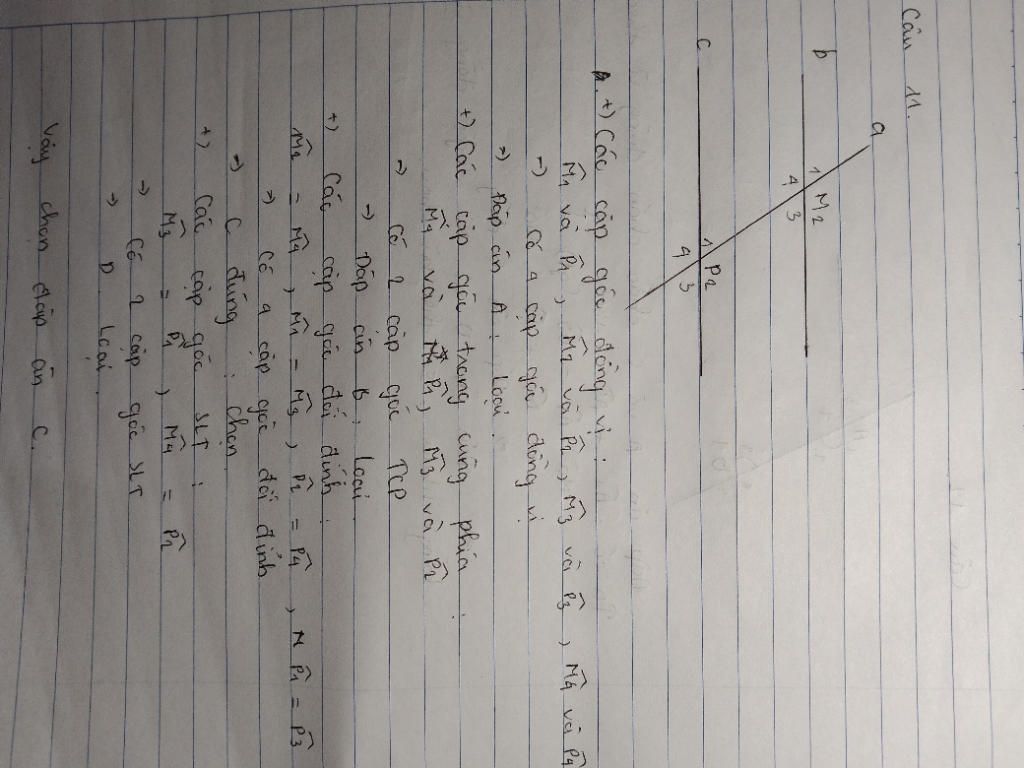 Câu 11.
a
b
1 M 2
4 3
c
1 P 2
4 3
A. +) Các cặp góc đồng vị :
M̂1 và P̂1 , M̂2 và P̂2 , M̂3 và P̂3 , M̂4 và P̂4
→) Có 4 cặp góc đồng vị
→) Đáp án A, loại
+) Các cặp góc trong cùng phía :
M̂4 và P̂1 , M̂3 và P̂2
→) Có 2 cặp góc TCP
→) Đáp án B, loại
+) Các cặp góc đối đỉnh :
M̂2 = M̂4 , M̂1 = M̂3 , P̂2 = P̂4 , P̂1 = P̂3
→) Có 4 cặp góc đối đỉnh
→) C đúng , chọn
+) Các cặp góc SLT :
M̂3 = P̂1 , M̂4 = P̂2
→) Có 2 cặp góc SLT
→) D loại
Vậy chọn đáp án C.